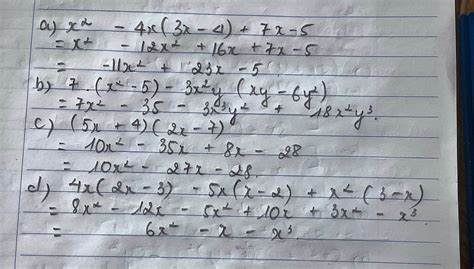 a) x² - 4x(3x - 4) + 7x - 5
= x² - 12x² + 16x + 7x - 5
= -11x² + 23x - 5
b) 7.(x² - 5) - 3x²y (xy - 6y²)
= 7x² - 35 - 3x³y² + 18x²y³.
c) (5x + 4)(2x - 7)
= 10x² - 35x + 8x - 28
= 10x² - 27x - 28.
d) 4x(2x - 3) - 5x(x - 2) + x²(3 - x)
= 8x² - 12x - 5x² + 10x + 3x² - x³
= 6x² - x - x³